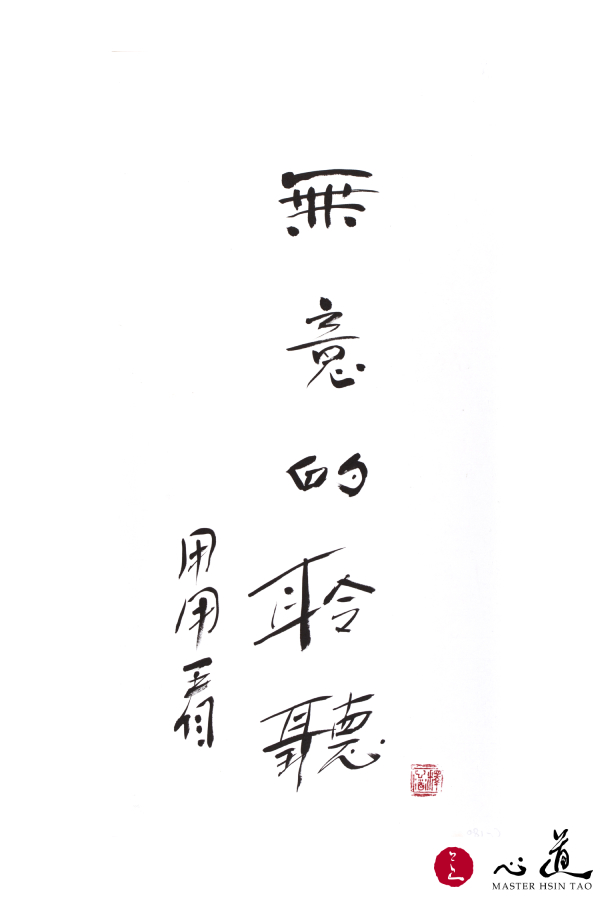 無意的聆聽
用用看
心道
MASTER HSIN TAO